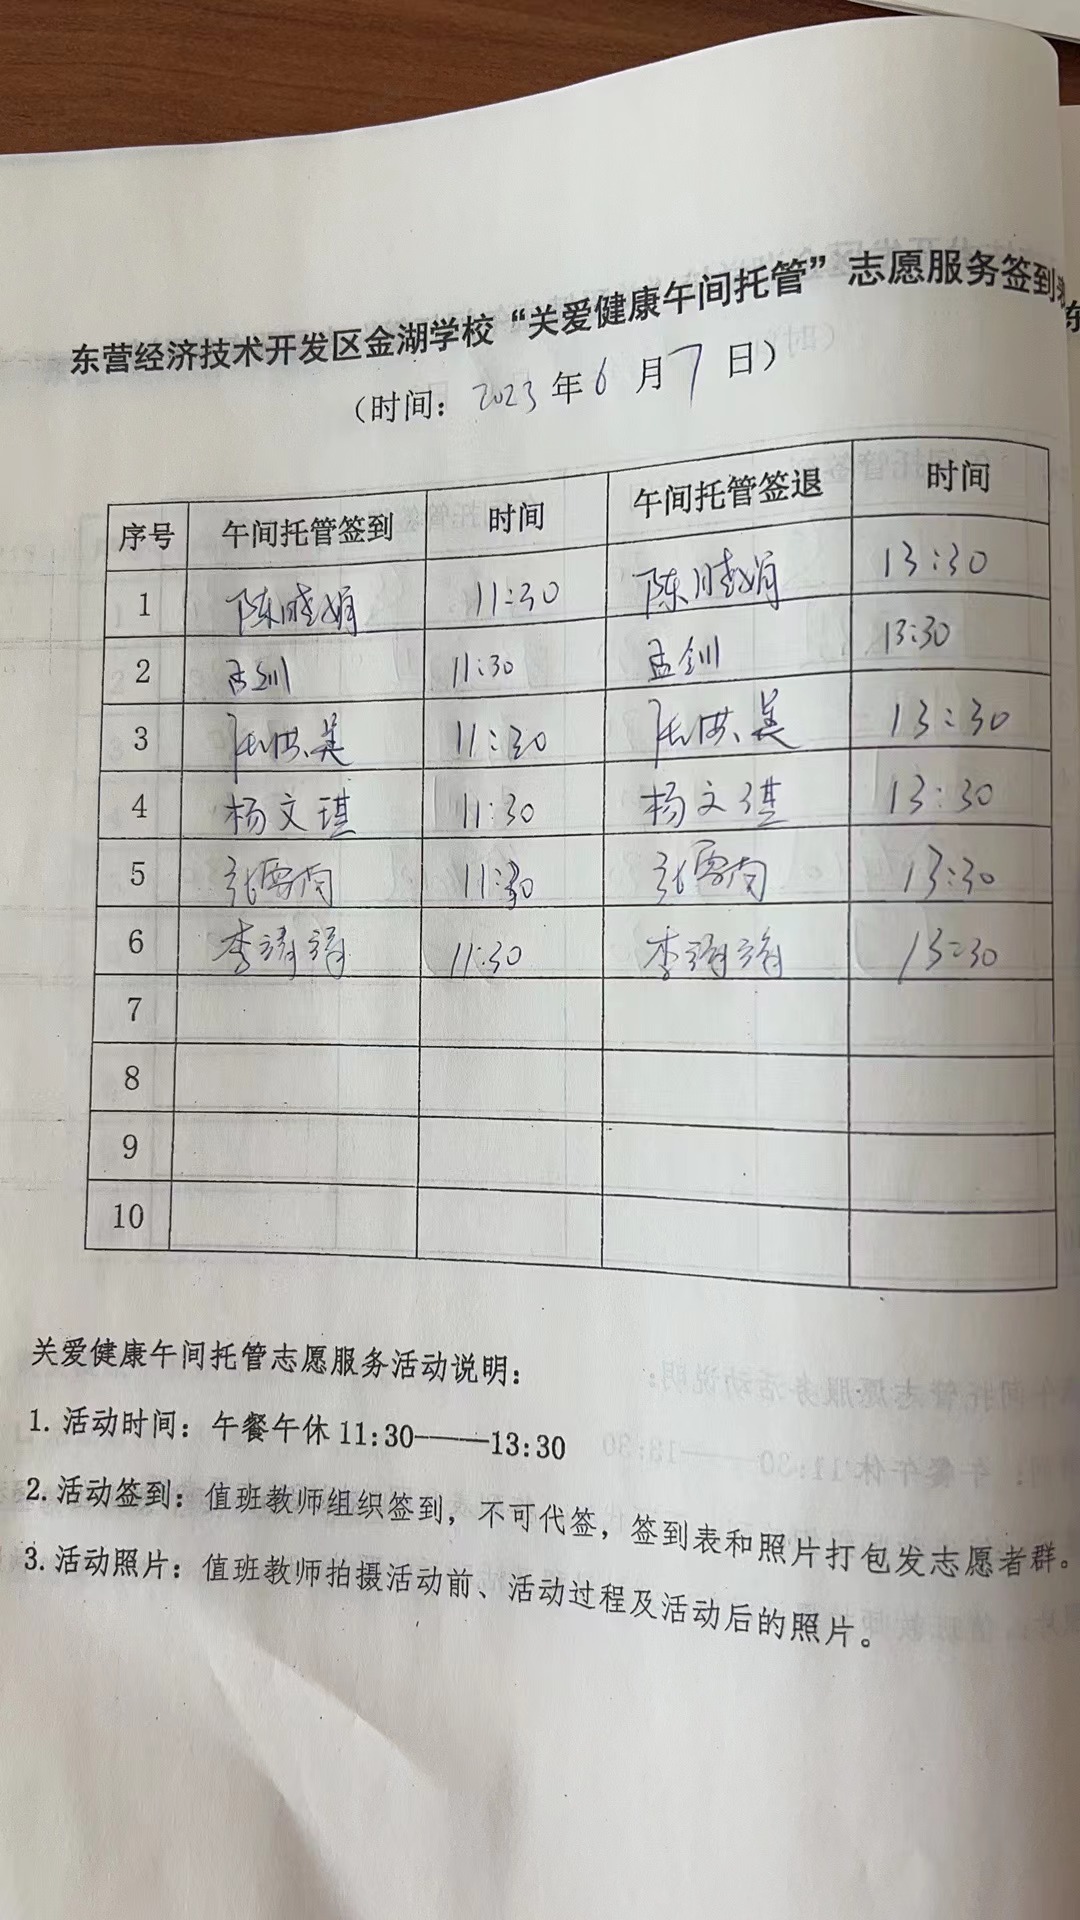 东营经济技术开发区金湖学校“关爱健康午间托管”志愿服务签到表
（时间：2023年6月7日）
序号 午间托管签到 时间 午间托管签退 时间
1 陈晓娟 11:30 陈晓娟 13:30
2 孟钏 11:30 孟钏 13:30
3 11:30 13:30
4 杨文琪 11:30 杨文琪 13:30
5 张雪南 11:30 张雪南 13:30
6 李靖靖 11:30 李靖靖 13:30
7
8
9
10
关爱健康午间托管志愿服务活动说明：
1. 活动时间：午餐午休 11:30———13:30
2. 活动签到：值班教师组织签到，不可代签，签到表和照片打包发志愿者群。
3. 活动照片：值班教师拍摄活动前、活动过程及活动后的照片。